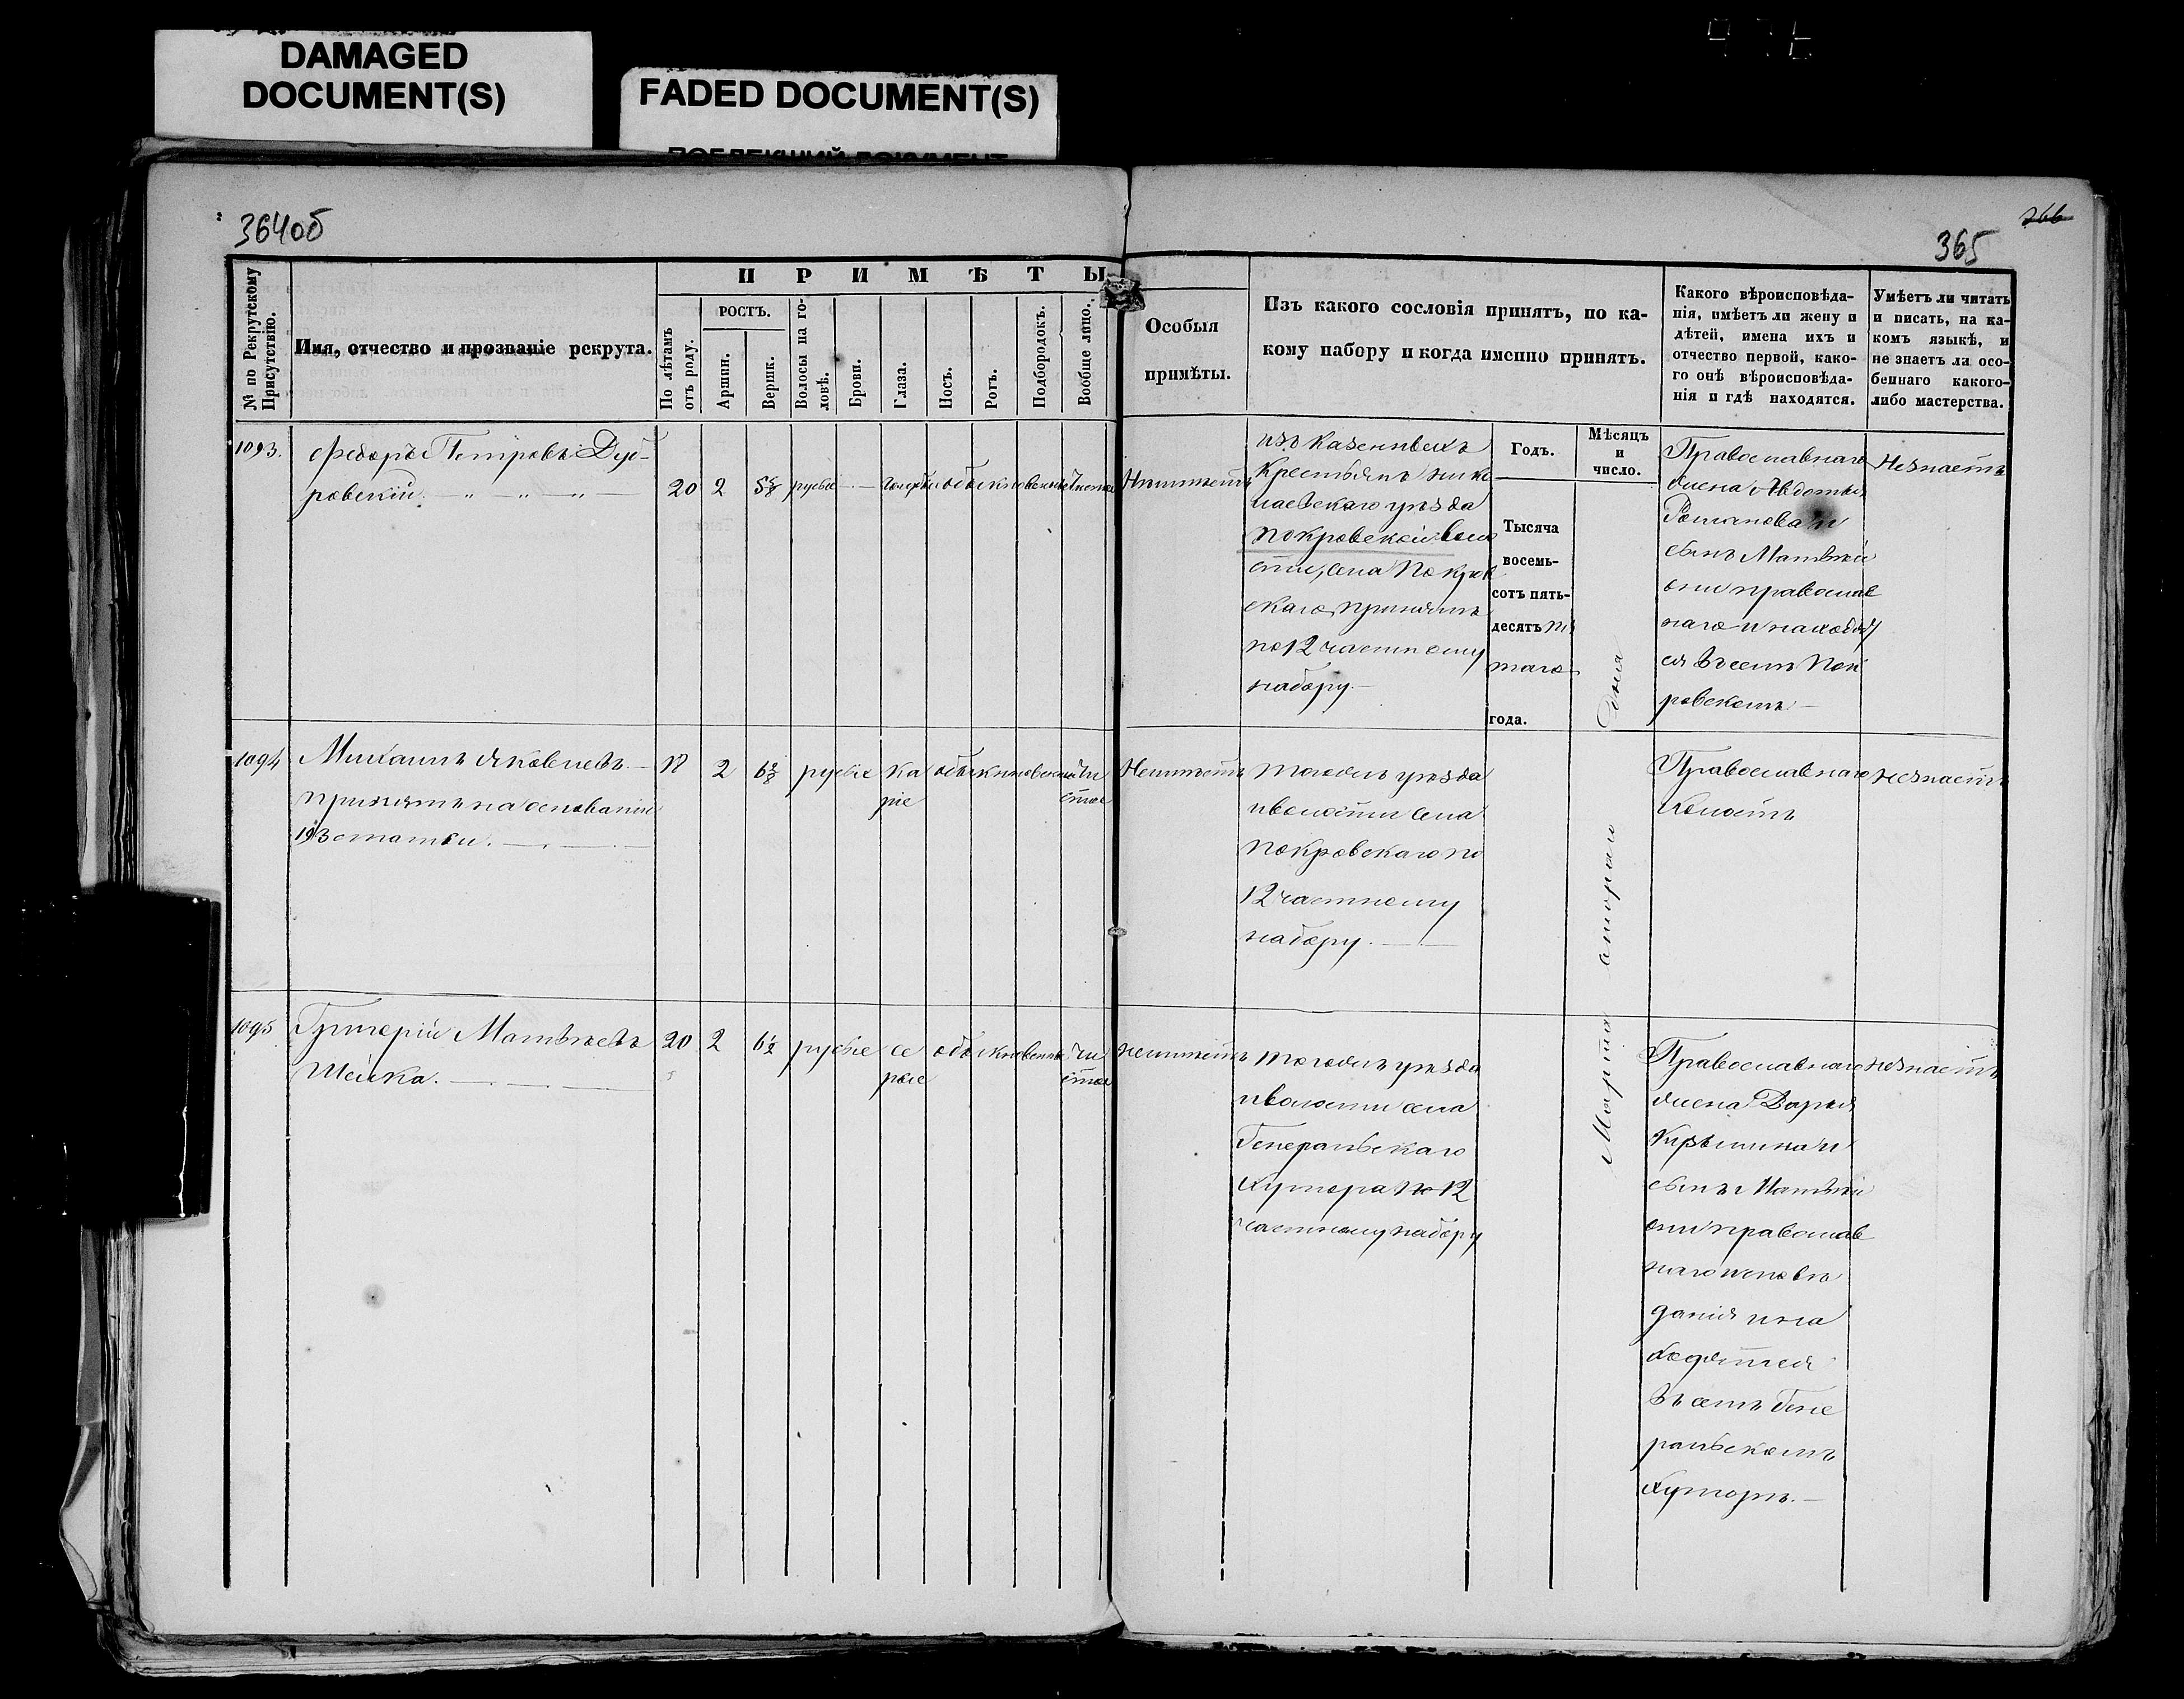 DAMAGED
DOCUMENT(S)
FADED DOCUMENT(S)
364об
366
365
№ по Рекрутскому Присутствію.
Имя, отчество и прозваніе рекрута.
ПРИМѢТЫ
По лѣтамъ отъ роду.
РОСТЪ.
Аршин.
Вершк.
Волосы на головѣ.
Брови.
Глаза.
Носъ.
Ротъ.
Подбородокъ.
Вообще лицо.
Особыя
примѣты.
Изъ какого сословія принятъ, по ка-
кому набору и когда именно принятъ.
Какого вѣроисповѣда-
нія, имѣетъ ли жену и
дѣтей, имена ихъ и
отчество первой, како-
го онѣ вѣроисповѣда-
нія и гдѣ находятся.
Умѣетъ ли читать
и писать, на ка-
комъ языкѣ, и
не знаетъ ли осо-
беннаго какого-
либо мастерства.
1093.
Федоръ Петровъ Дуб-
ровскій. — „ „ „
20 2 5 русые голубые обыкновенные чистое
Неимѣетъ
изъ казенныхъ
крестьянъ нико
лаевскаго уѣзда
Покровской воло
сти, села Покров
скаго, принятъ
по 12 частному
набору. —
Годъ.
Мѣсяцъ
и
число.
Тысяча
восемь-
сотъ пять-
десятъ пя
таго
года.
Марта втораго дня
Православнаго
жена Авдотья
Романова и
сынъ Матвѣй
они православ
наго и находят
ся въ селѣ Пок
ровскомъ —
Незнаетъ
1094
Михаилъ Яковлевъ. —
принятъ на основаніи
193 статьи. —
2 6 русые ка
ріе
обыкновенный чи
стое
Неимѣетъ
тогожъ уѣзда
и волости села
Покровскаго по
12 частному
набору. —
Православнаго
холостъ
незнаетъ
1095
Григорій Матвѣевъ
Шейка. —
20 2 6½ русые се
рые
обыкновенные чи
стое
неимѣетъ
тогожъ уѣзда
и волости села
Генеральскаго
Хутора по 12
частному набору
Православнаго
жена Дарья
сынъ Матвѣй
они православ
наго исповѣ
данія и на
ходятся
въ селѣ Гене
ральскомъ
Хуторѣ. —
незнаетъ